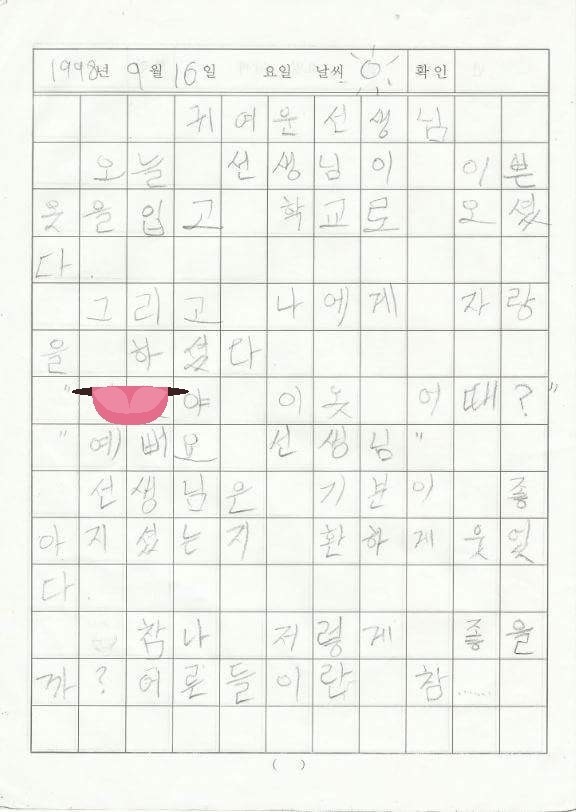 1998년 9월 16일 요일 날씨 확인
귀여운 선생님
오늘 선생님이 이쁜
옷을 입고 학교로 오셨
다.
그리고 나에게 자랑
을 하셨다
" 야 이 놋 어때?"
"예뻐요 선생님"
선생님은 기분이 좋
아지셨는지 환하게 웃었
다.
참나 저렇게 좋을
까? 어른들이란 참......
( )